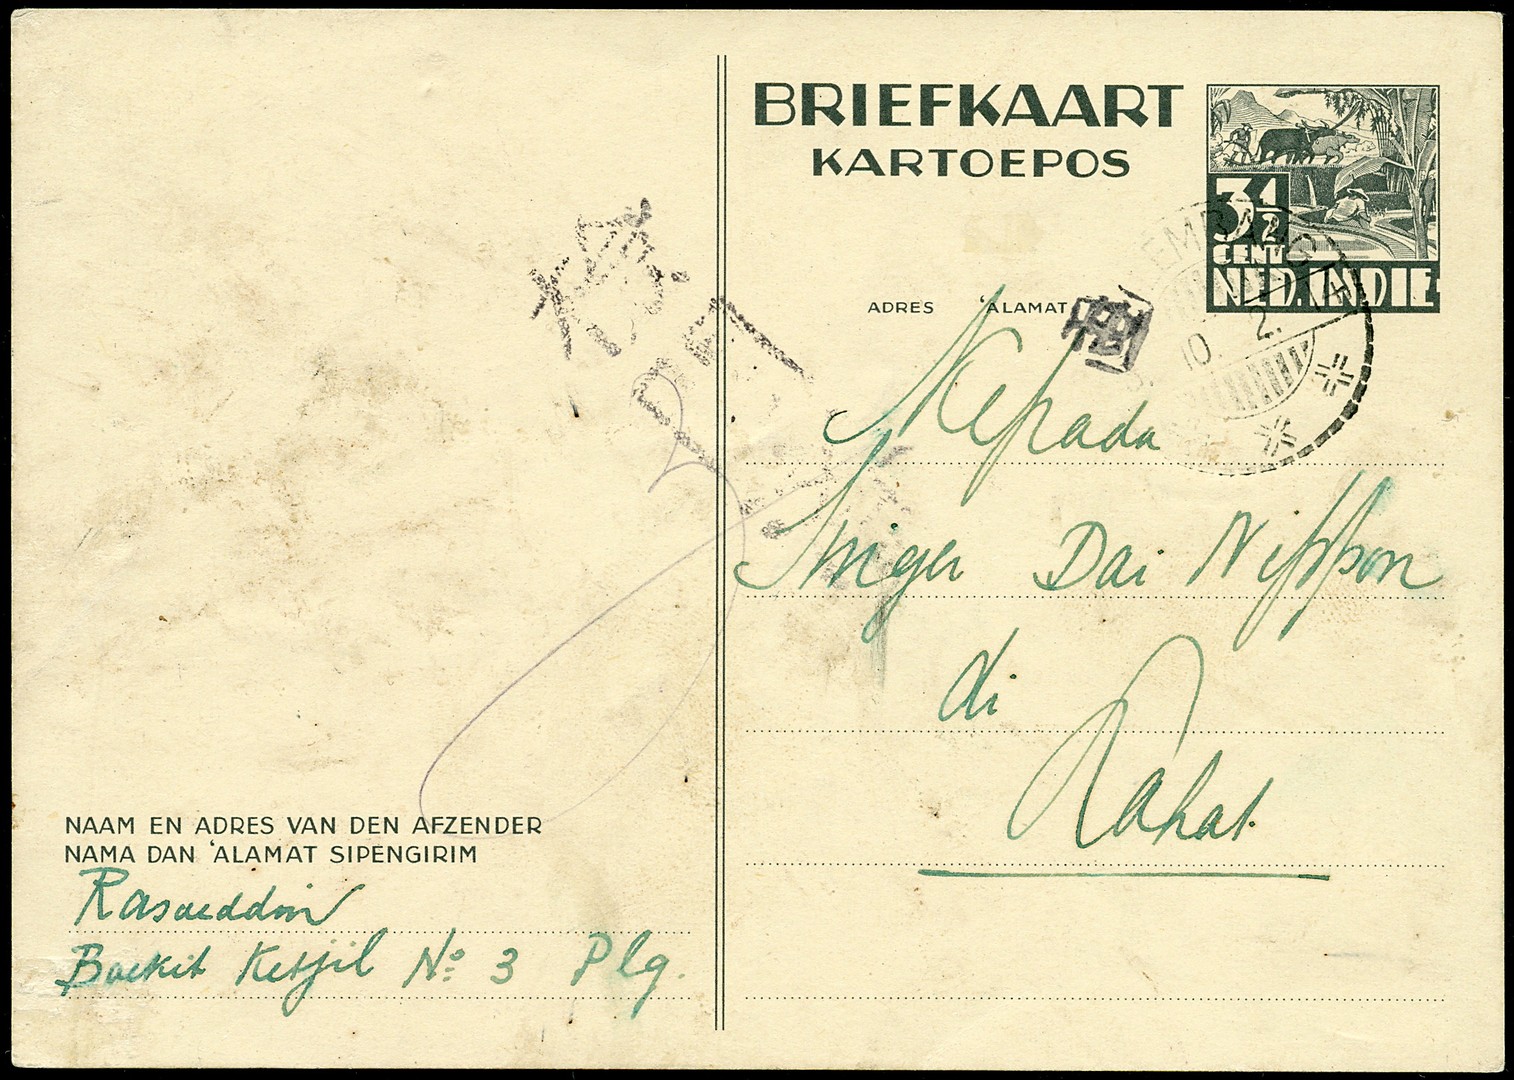 BRIEFKAART
KARTOEPOS
3 1/2
CENT
NED. INDIE
ADRES 'ALAMAT
Kepada
Singer Dai Nippon
di
Lahat.
NAAM EN ADRES VAN DEN AFZENDER
NAMA DAN 'ALAMAT SIPENGIRIM
Rasaeddin
Boekit Ketjil No. 3 Plg.